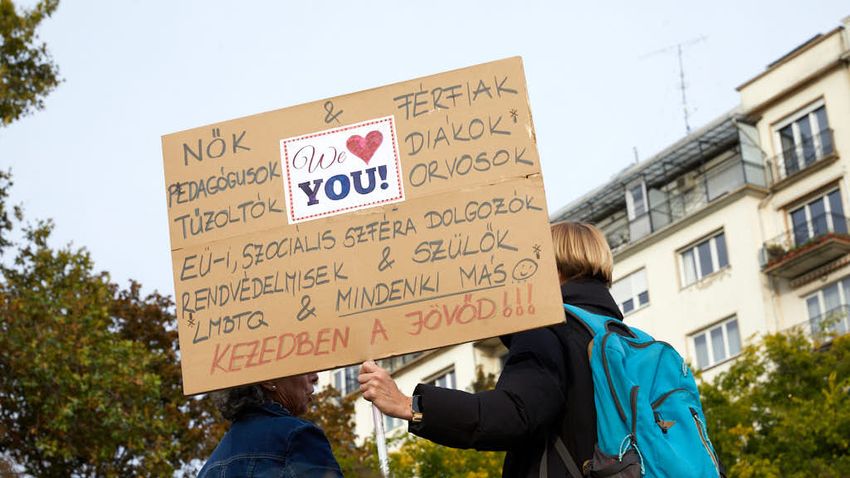 NŐK & FÉRFIAK
PEDAGÓGUSOK We ❤ YOU! DIÁKOK*
TŰZOLTÓK ORVOSOK
EÜ-I, SZOCIÁLIS SZFÉRA DOLGOZÓK
RENDVÉDELMISEK & SZÜLŐK
*LMBTQ & MINDENKI MÁS☺
KEZEDBEN A JÖVŐD!!!